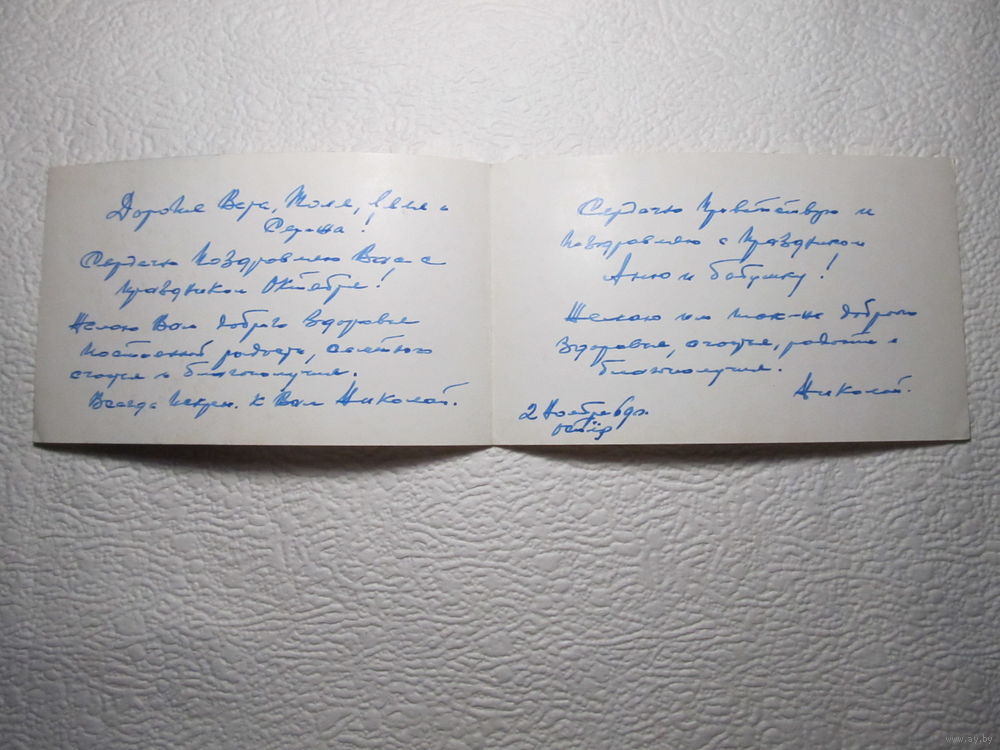 Дорогие Вера, Толя, и
Сережа!
Сердечно Поздравляю Вас с
праздником Октября!
Желаю Вам доброго здоровья
постоянной радости, семейного
счастья и благополучия.
Всегда Искрен. к Вам Николай.
Сердечно Приветствую и
поздравляю с Праздником
Аню и бабушку!
Желаю им так-же доброго
здоровья, счастья, радости и
благополучия.
Николай.
2 Ноября
www.ay.by